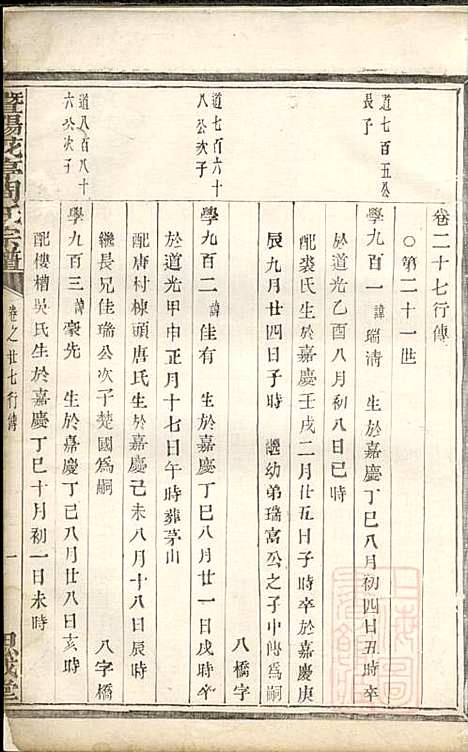 卷二十七行傳
○第二十一世
道七百五公長子
學九百一 諱瑞清 生於嘉慶丁巳八月初四日丑時卒
於道光乙酉八月初八日巳時
配裘氏生於嘉慶壬戌二月廿五日子時卒於嘉慶庚
辰九月廿四日子時 繼幼弟瑞富公之子中傳爲嗣
八橋字
道七百六十八公次子
學九百二 諱佳有 生於嘉慶丁巳八月廿一日戌時卒
於道光甲申正月十七日午時葬茅山
配唐村棟頭唐氏生於嘉慶己未八月十八日辰時
繼長兄佳瑞公次子楚國爲嗣
八字橋
道八百八十六公次子
學九百三 諱豪先 生於嘉慶丁巳八月廿八日亥時
配樓樓吳氏生於嘉慶丁巳十月初一日未時
暨陽花亭周氏宗譜
卷之廿七行傳
一
思誠堂